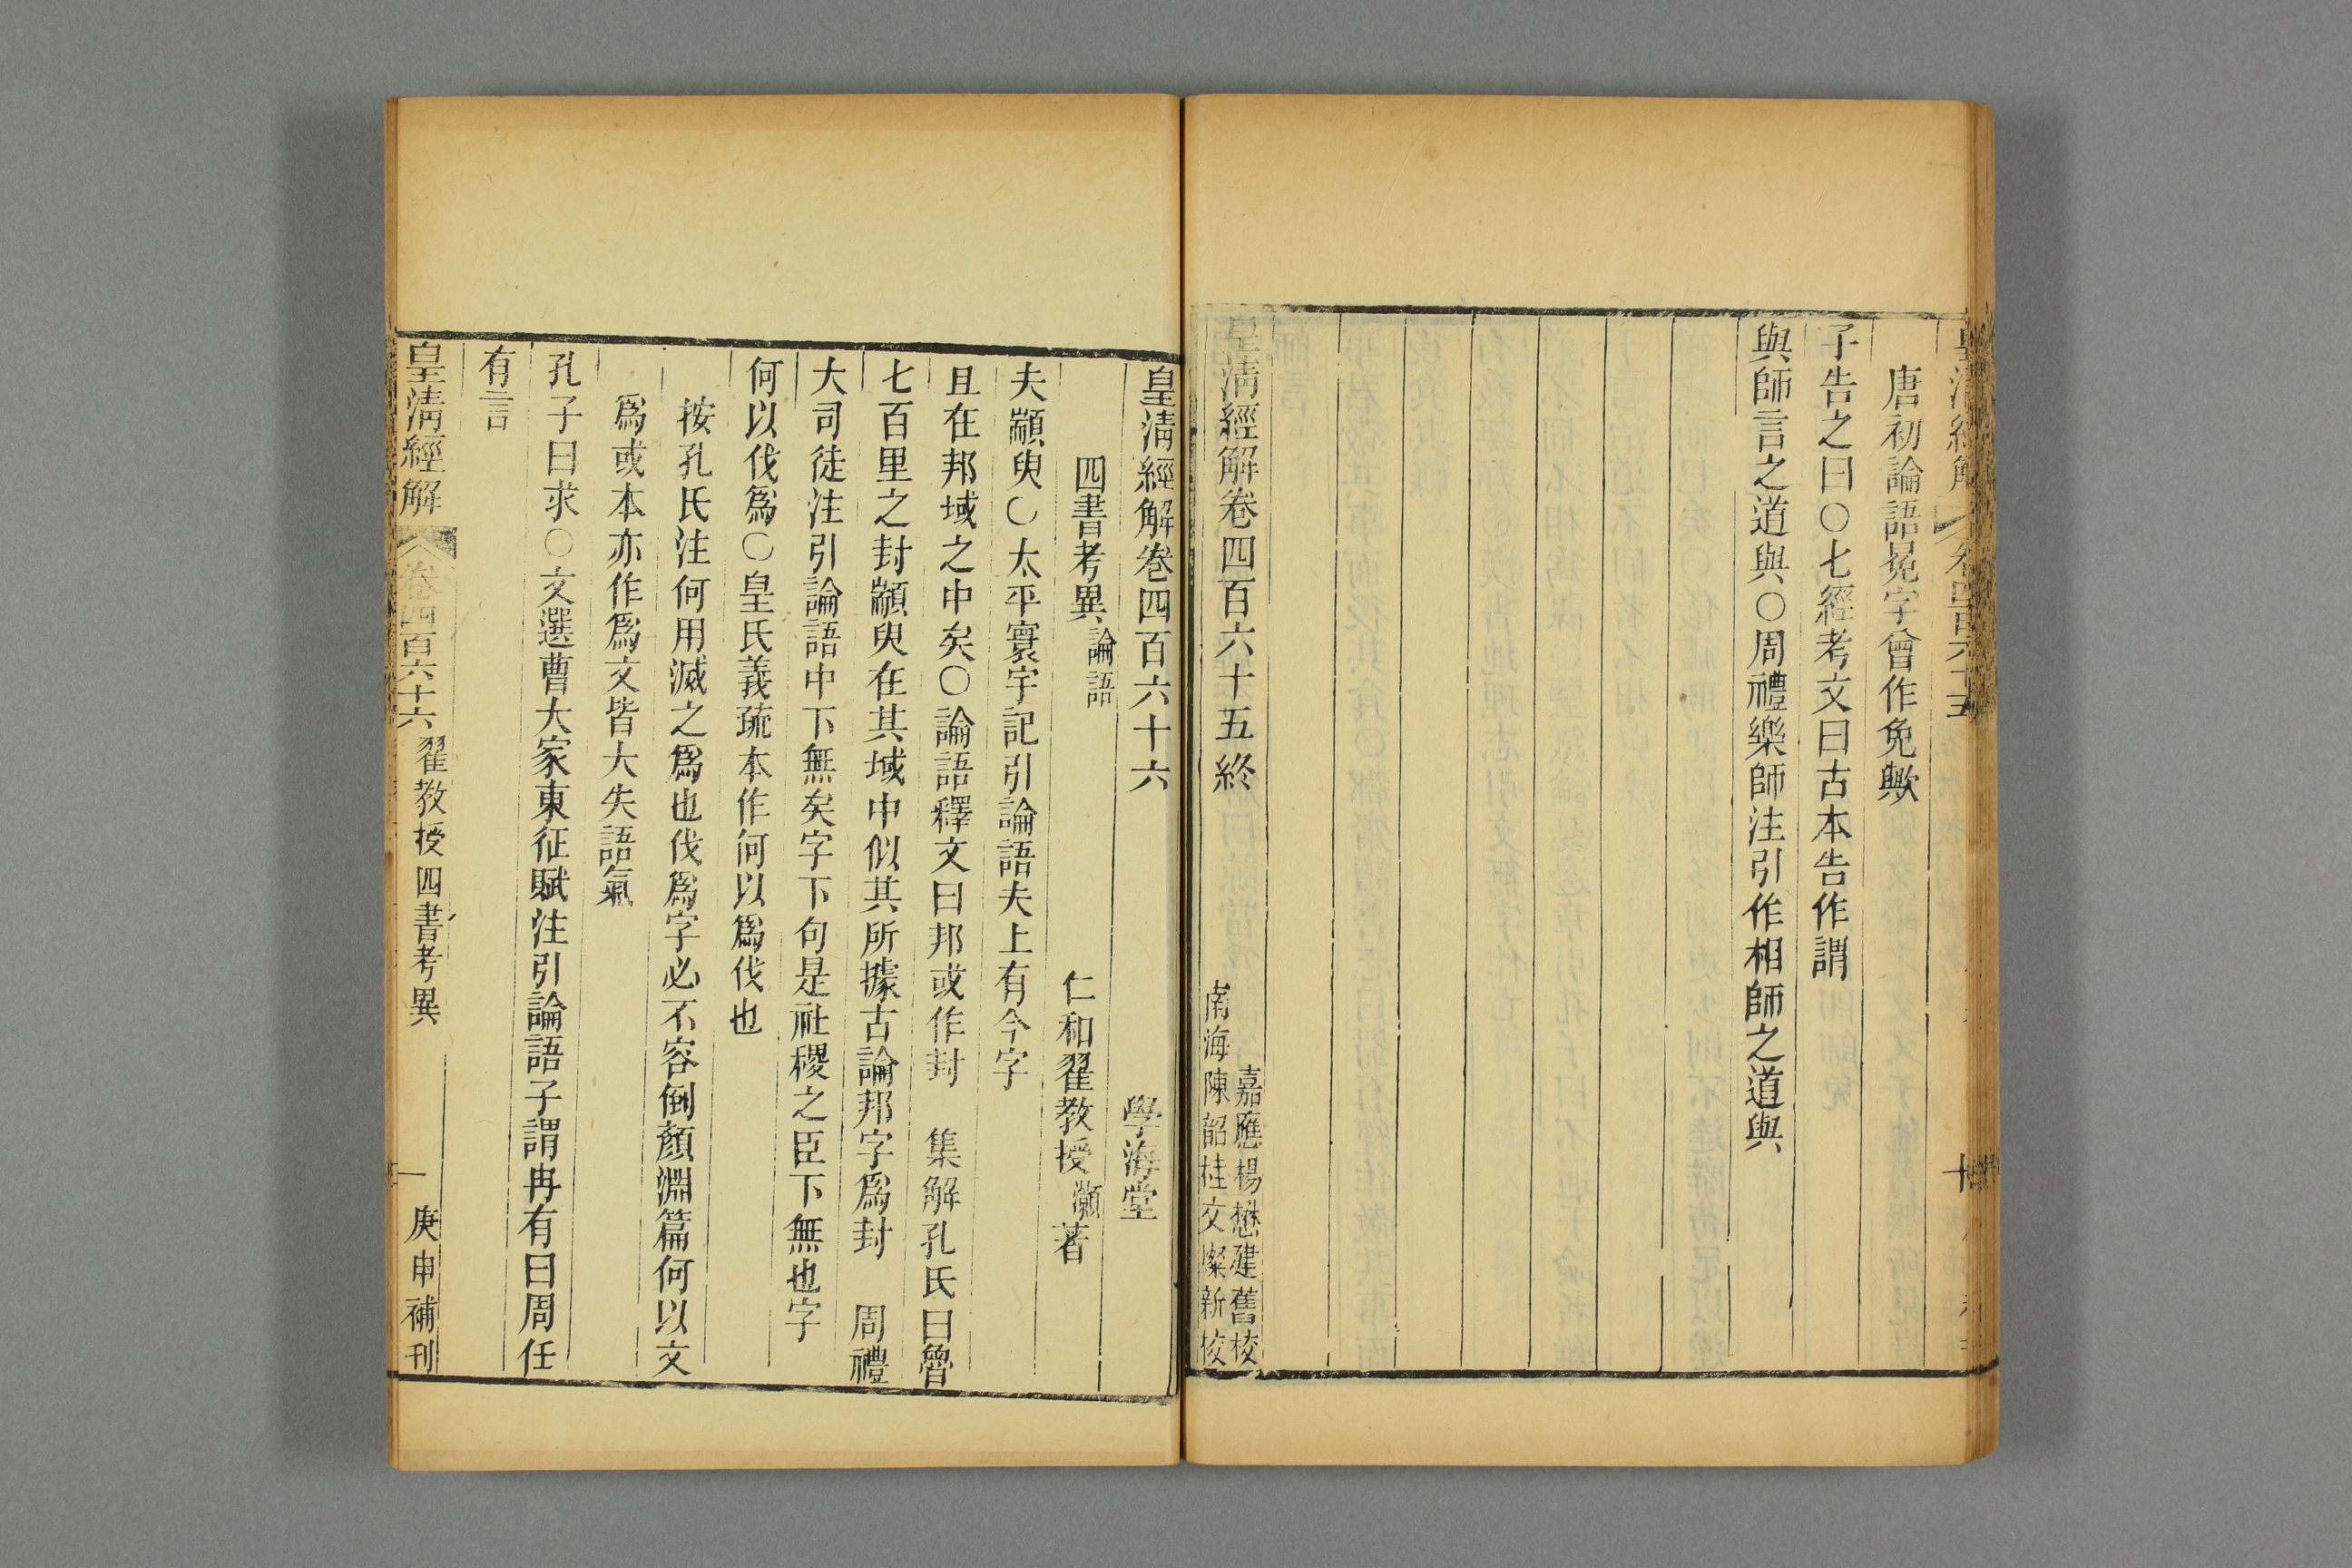 唐初論語冕字曾作免歟
子告之曰〇七經考文曰古本告作謂
與師言之道與〇周禮樂師注引作相師之道與
皇清經解卷四百六十五終
嘉應楊懋建舊校
南海陳韶桂文燦新校
皇清經解卷四百六十六
學海堂
四書考異
論語
仁和翟教授灝著
夫顓臾〇太平寰宇記引論語夫上有今字
且在邦域之中矣〇論語釋文曰邦或作封　集解孔氏曰魯
七百里之封顓臾在其域中似其所據古論邦字爲封　周禮
大司徒注引論語中下無矣字下句是社稷之臣下無也字
何以伐爲〇皇氏義疏本作何以爲伐也
按孔氏注何用滅之爲也伐爲字必不容倒顏淵篇何以文
爲或本亦作爲文皆大失語氣
孔子曰求〇文選曹大家東征賦注引論語子謂冉有曰周任
有言
皇清經解
卷四百六十六
翟教授四書考異
一
庚申補刊